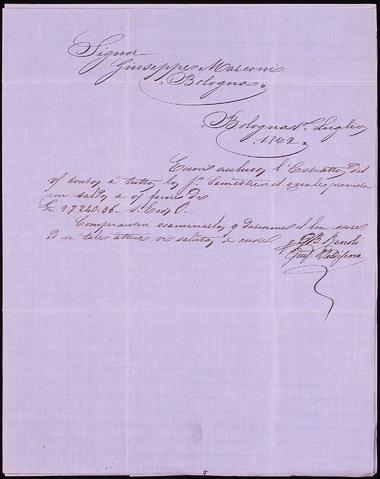 Signor
Giuseppe Marconi
Bologna
Bologna 1º Luglio
1862.
Eccovi accluso l'Estratto del
vs/ conto, a tutto lo Semestre, il quale presenta
un saldo a vs/ favore di
27240.06.
Compiacetevi esaminarlo, e darmene il ben essere
ed in tale attesa vi saluto di cuore